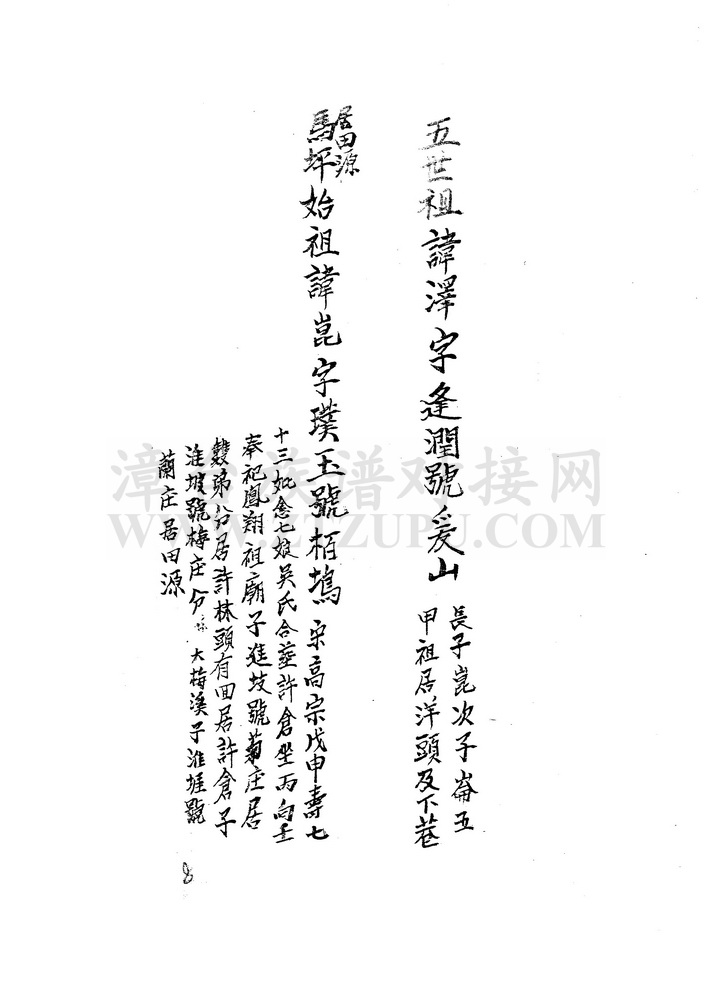 五世祖諱澤字逢潤號爰山
長子崑次子崙五
甲祖居洋頭及下巷
居田源
馬坪始祖諱崑字璞玉號栢塢
宋高宗戊申壽七
十三妣念七娘吳氏合塟許倉坐丙向壬
奉祀鳳翔祖廟子進坡號菊庄居
雙弟分居許林頭有回居許倉子
淮坡號梅庄分 大梅溪子淮堐號
蘭庄居田源
8
漳台族谱对接网
WWW.ZTZUPU.COM